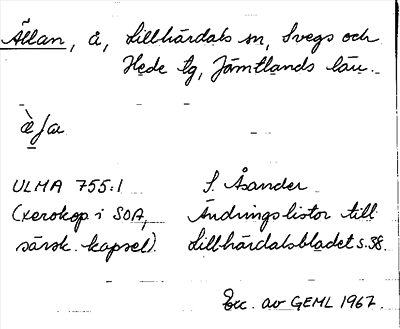 Ällan, å, Lillhärdals sn, Svegs och
Hede tg, Jämtlands län.
ä̀ǀa
ULMA 755:1 S. Åsander
(xerokop i SOA, Ändringslistor till
särsk. kapsel). Lillhärdalsbladet s. 38.
Exc. av GEML 1967.